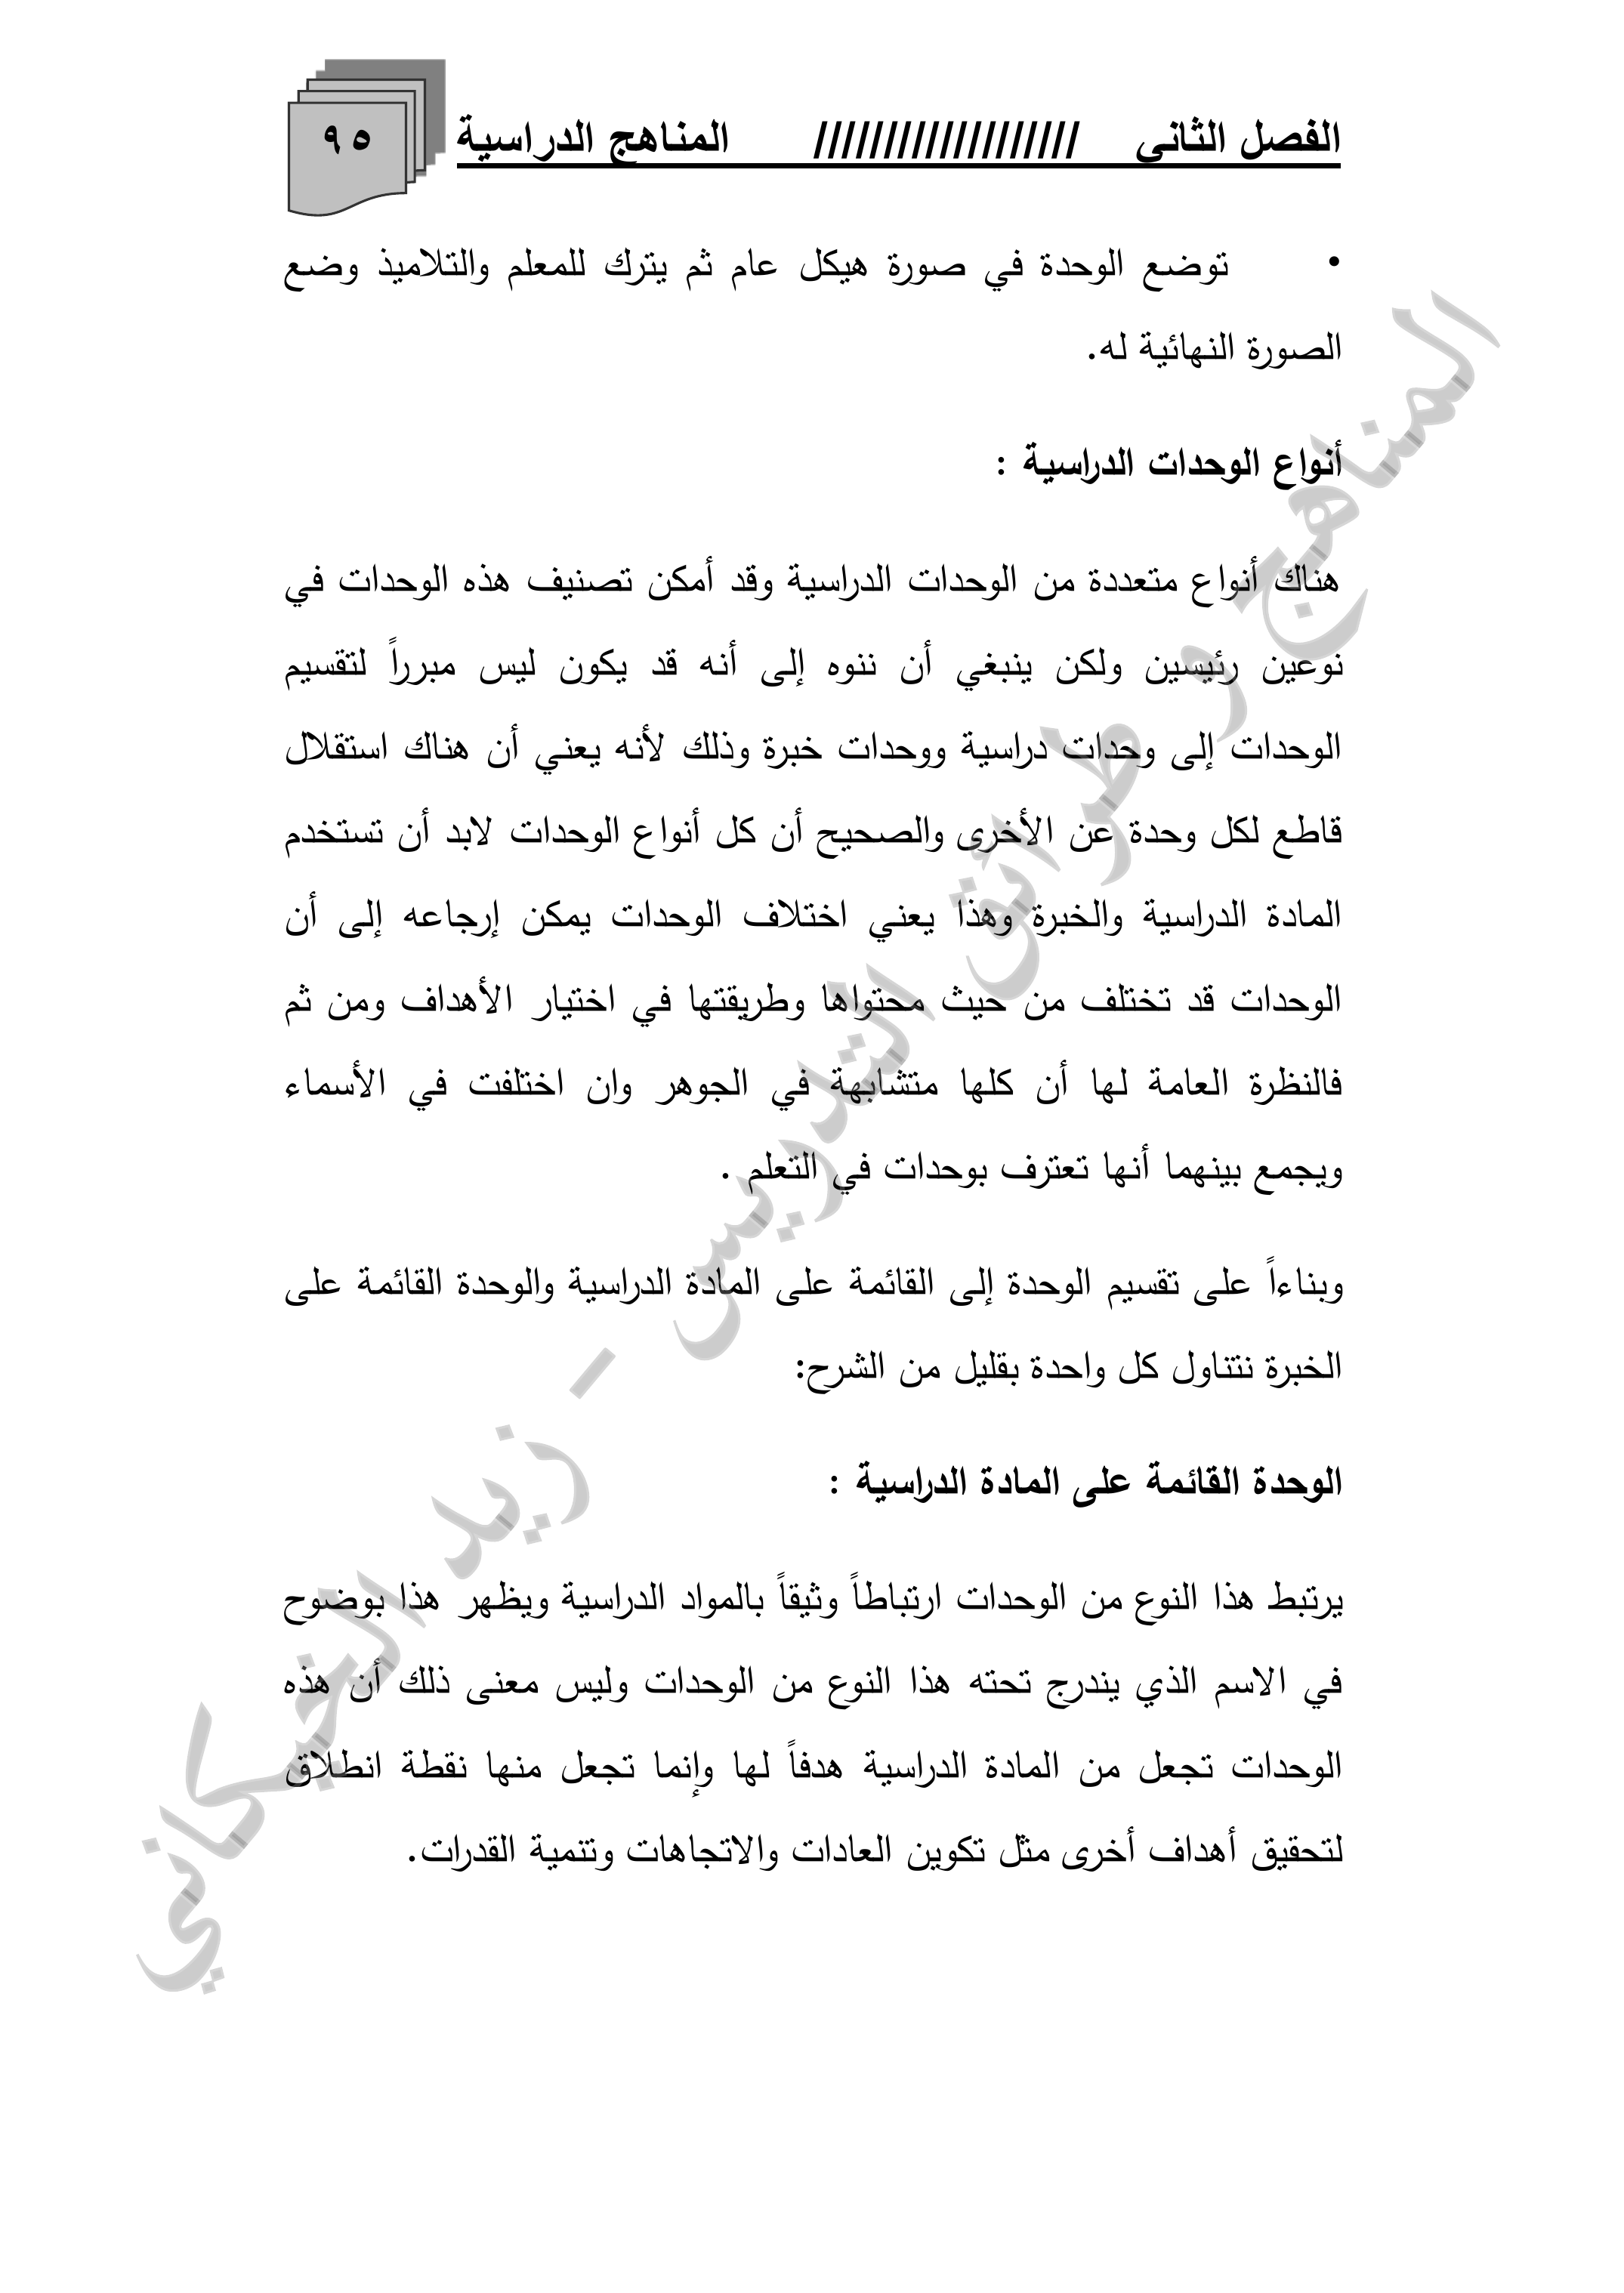 الفصل الثاني /////////////////// المناهج الدراسية ٩٥
• توضع الوحدة في صورة هيكل عام ثم يترك للمعلم والتلاميذ وضع
الصورة النهائية له.
أنواع الوحدات الدراسية :
هناك أنواع متعددة من الوحدات الدراسية وقد أمكن تصنيف هذه الوحدات في
نوعين رئيسين ولكن ينبغي أن ننوه إلى أنه قد يكون ليس مبرراً لتقسيم
الوحدات إلى وحدات دراسية ووحدات خبرة وذلك لأنه يعني أن هناك استقلال
قاطع لكل وحدة عن الأخرى والصحيح أن كل أنواع الوحدات لابد أن تستخدم
المادة الدراسية والخبرة وهذا يعني اختلاف الوحدات يمكن إرجاعه إلى أن
الوحدات قد تختلف من حيث محتواها وطريقتها في اختيار الأهداف ومن ثم
فالنظرة العامة لها أن كلها متشابهة في الجوهر وان اختلفت في الأسماء
ويجمع بينهما أنها تعترف بوحدات في التعلم .
وبناءاً على تقسيم الوحدة إلى القائمة على المادة الدراسية والوحدة القائمة على
الخبرة نتناول كل واحدة بقليل من الشرح:
الوحدة القائمة على المادة الدراسية :
يرتبط هذا النوع من الوحدات ارتباطاً وثيقاً بالمواد الدراسية ويظهر هذا بوضوح
في الاسم الذي يندرج تحته هذا النوع من الوحدات وليس معنى ذلك أن هذه
الوحدات تجعل من المادة الدراسية هدفاً لها وإنما تجعل منها نقطة انطلاق
لتحقيق أهداف أخرى مثل تكوين العادات والاتجاهات وتنمية القدرات.
المناهج و طرائق التدريس - زيد الخيكاني